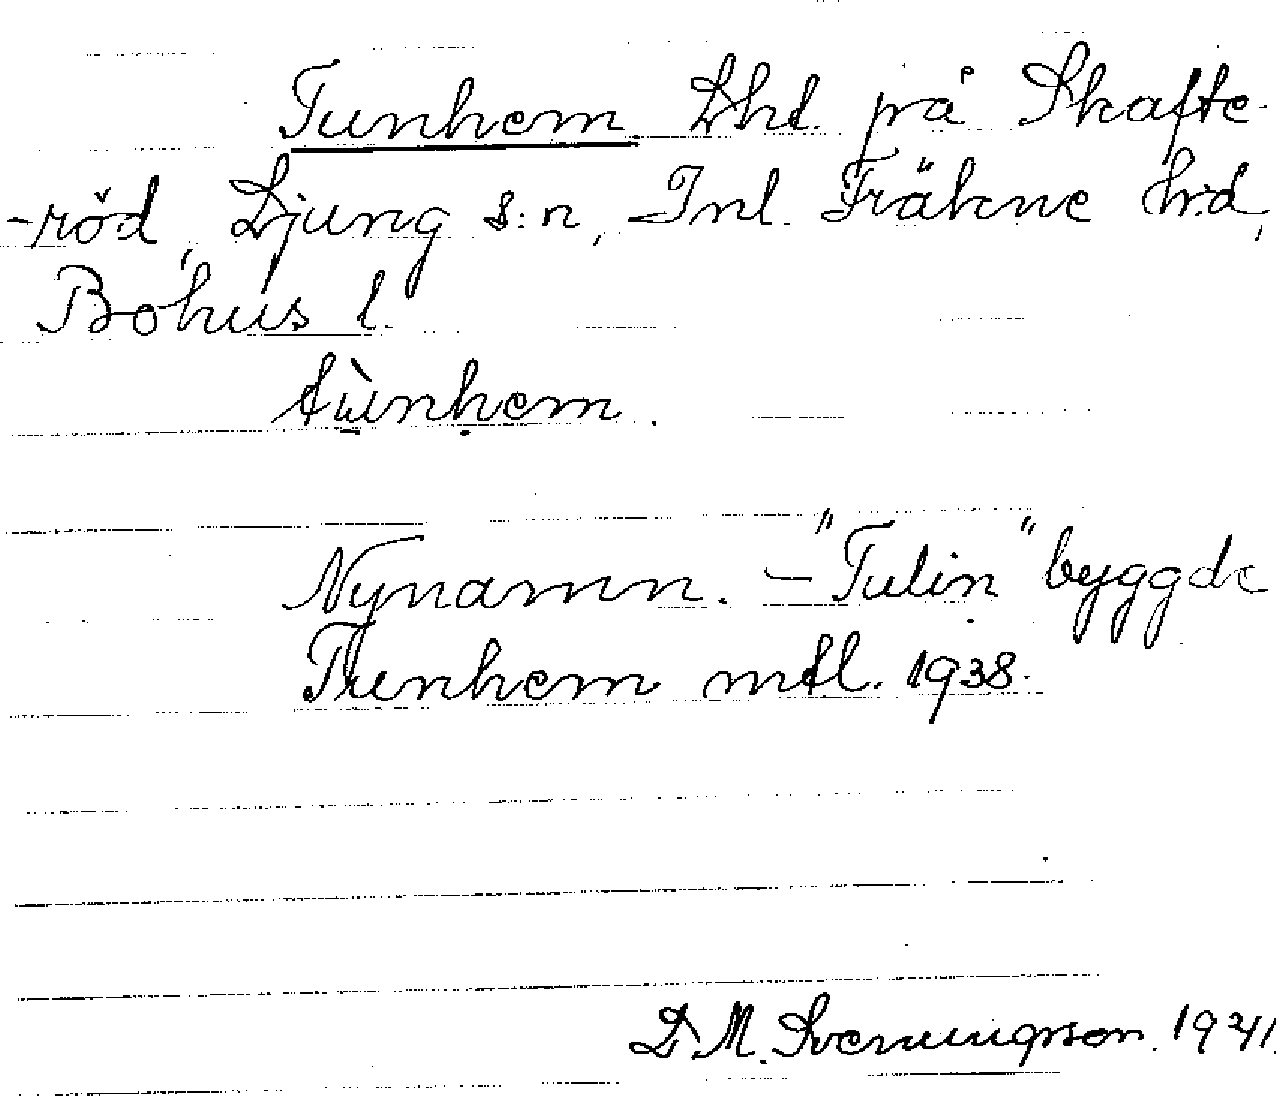 Tunhem. Lhl. på Skafte-
-röd, Ljung s:n, Inl. Fräkne hd,
Bohus l.
tùnhem.
Nynamn. – "Tulin" byggde
Tunhem mtl. 1938.
D. M. Svenningson. 1941.